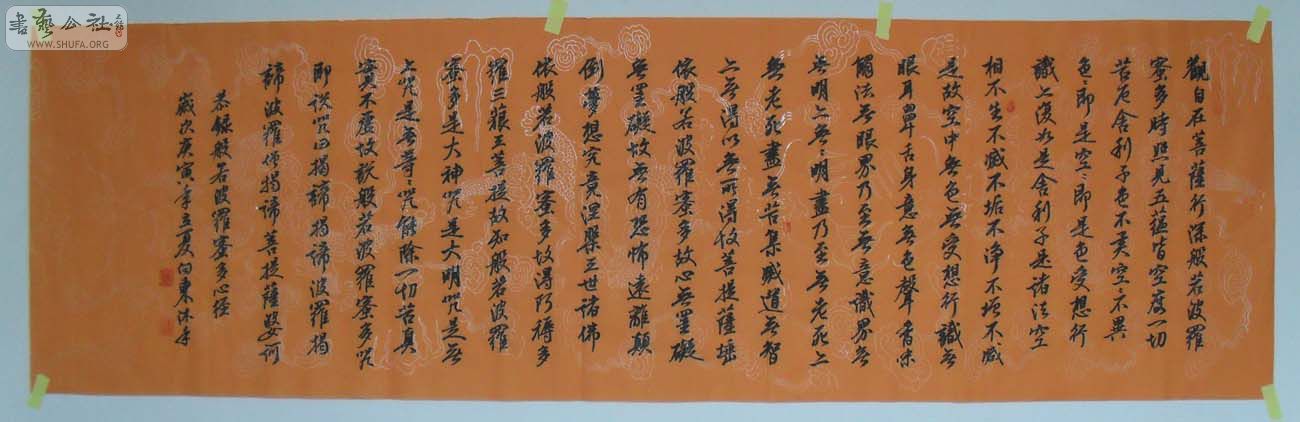 書藝公社
WWW.SHUFA.ORG
觀自在菩薩行深般若波羅
蜜多時照見五蘊皆空度一切
苦厄舍利子色不異空不異
色〻即是空〻即是色受想行
識亦復如是舍利子是諸法空
相不生不滅不垢不淨不增不減
是故空中無色無受想行識無
眼耳鼻舌身意無色聲香味
觸法無眼界乃至無意識界無
無明亦無〻明盡乃至無老死亦
無老死盡無苦集滅道無智
亦無得以無所得故菩提薩埵
依般若波羅蜜多故心無罣礙
無罣礙故無有恐怖遠離顛
倒夢想究竟涅槃三世諸佛
依般若波羅蜜多故得阿耨多
羅三藐三菩提故知般若波羅
蜜多是大神咒是大明咒是無
上咒是無等〻咒能除一切苦真
實不虛故說般若波羅蜜多咒
即說咒曰揭諦揭諦波羅揭
諦波羅僧揭諦菩提薩婆訶
恭錄般若波羅蜜多心經
歲次庚寅年立夏向東沐手